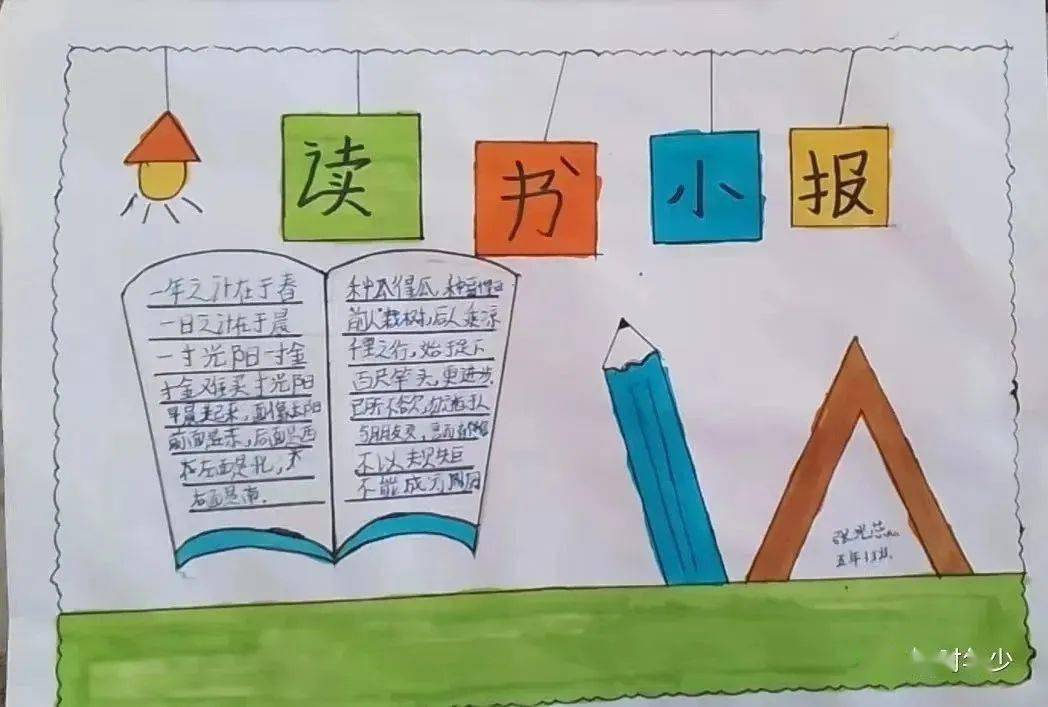 读书小报
一年之计在于春
一日之计在于晨
一寸光阳一寸金
寸金难买寸光阳
早晨起来,面像太阳
前面是东,后面是西
左面是北,
右面是南.
种瓜得瓜,种豆得豆
前人栽树,后人乘凉
千里之行,始于足下
百尺竿头,更进步.
己所不欲,勿施于人
与朋友交,言而有信
不以规矩
不能成方圆
五年
少